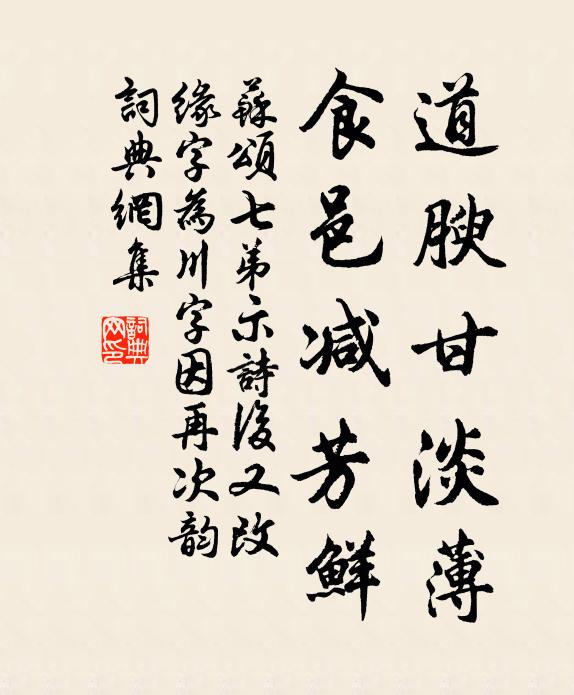 道腴甘淡薄
食邑減芳鮮
蘇頌七弟示詩後又改
緣字為川字因再次韵
詞典網集
詞典网印